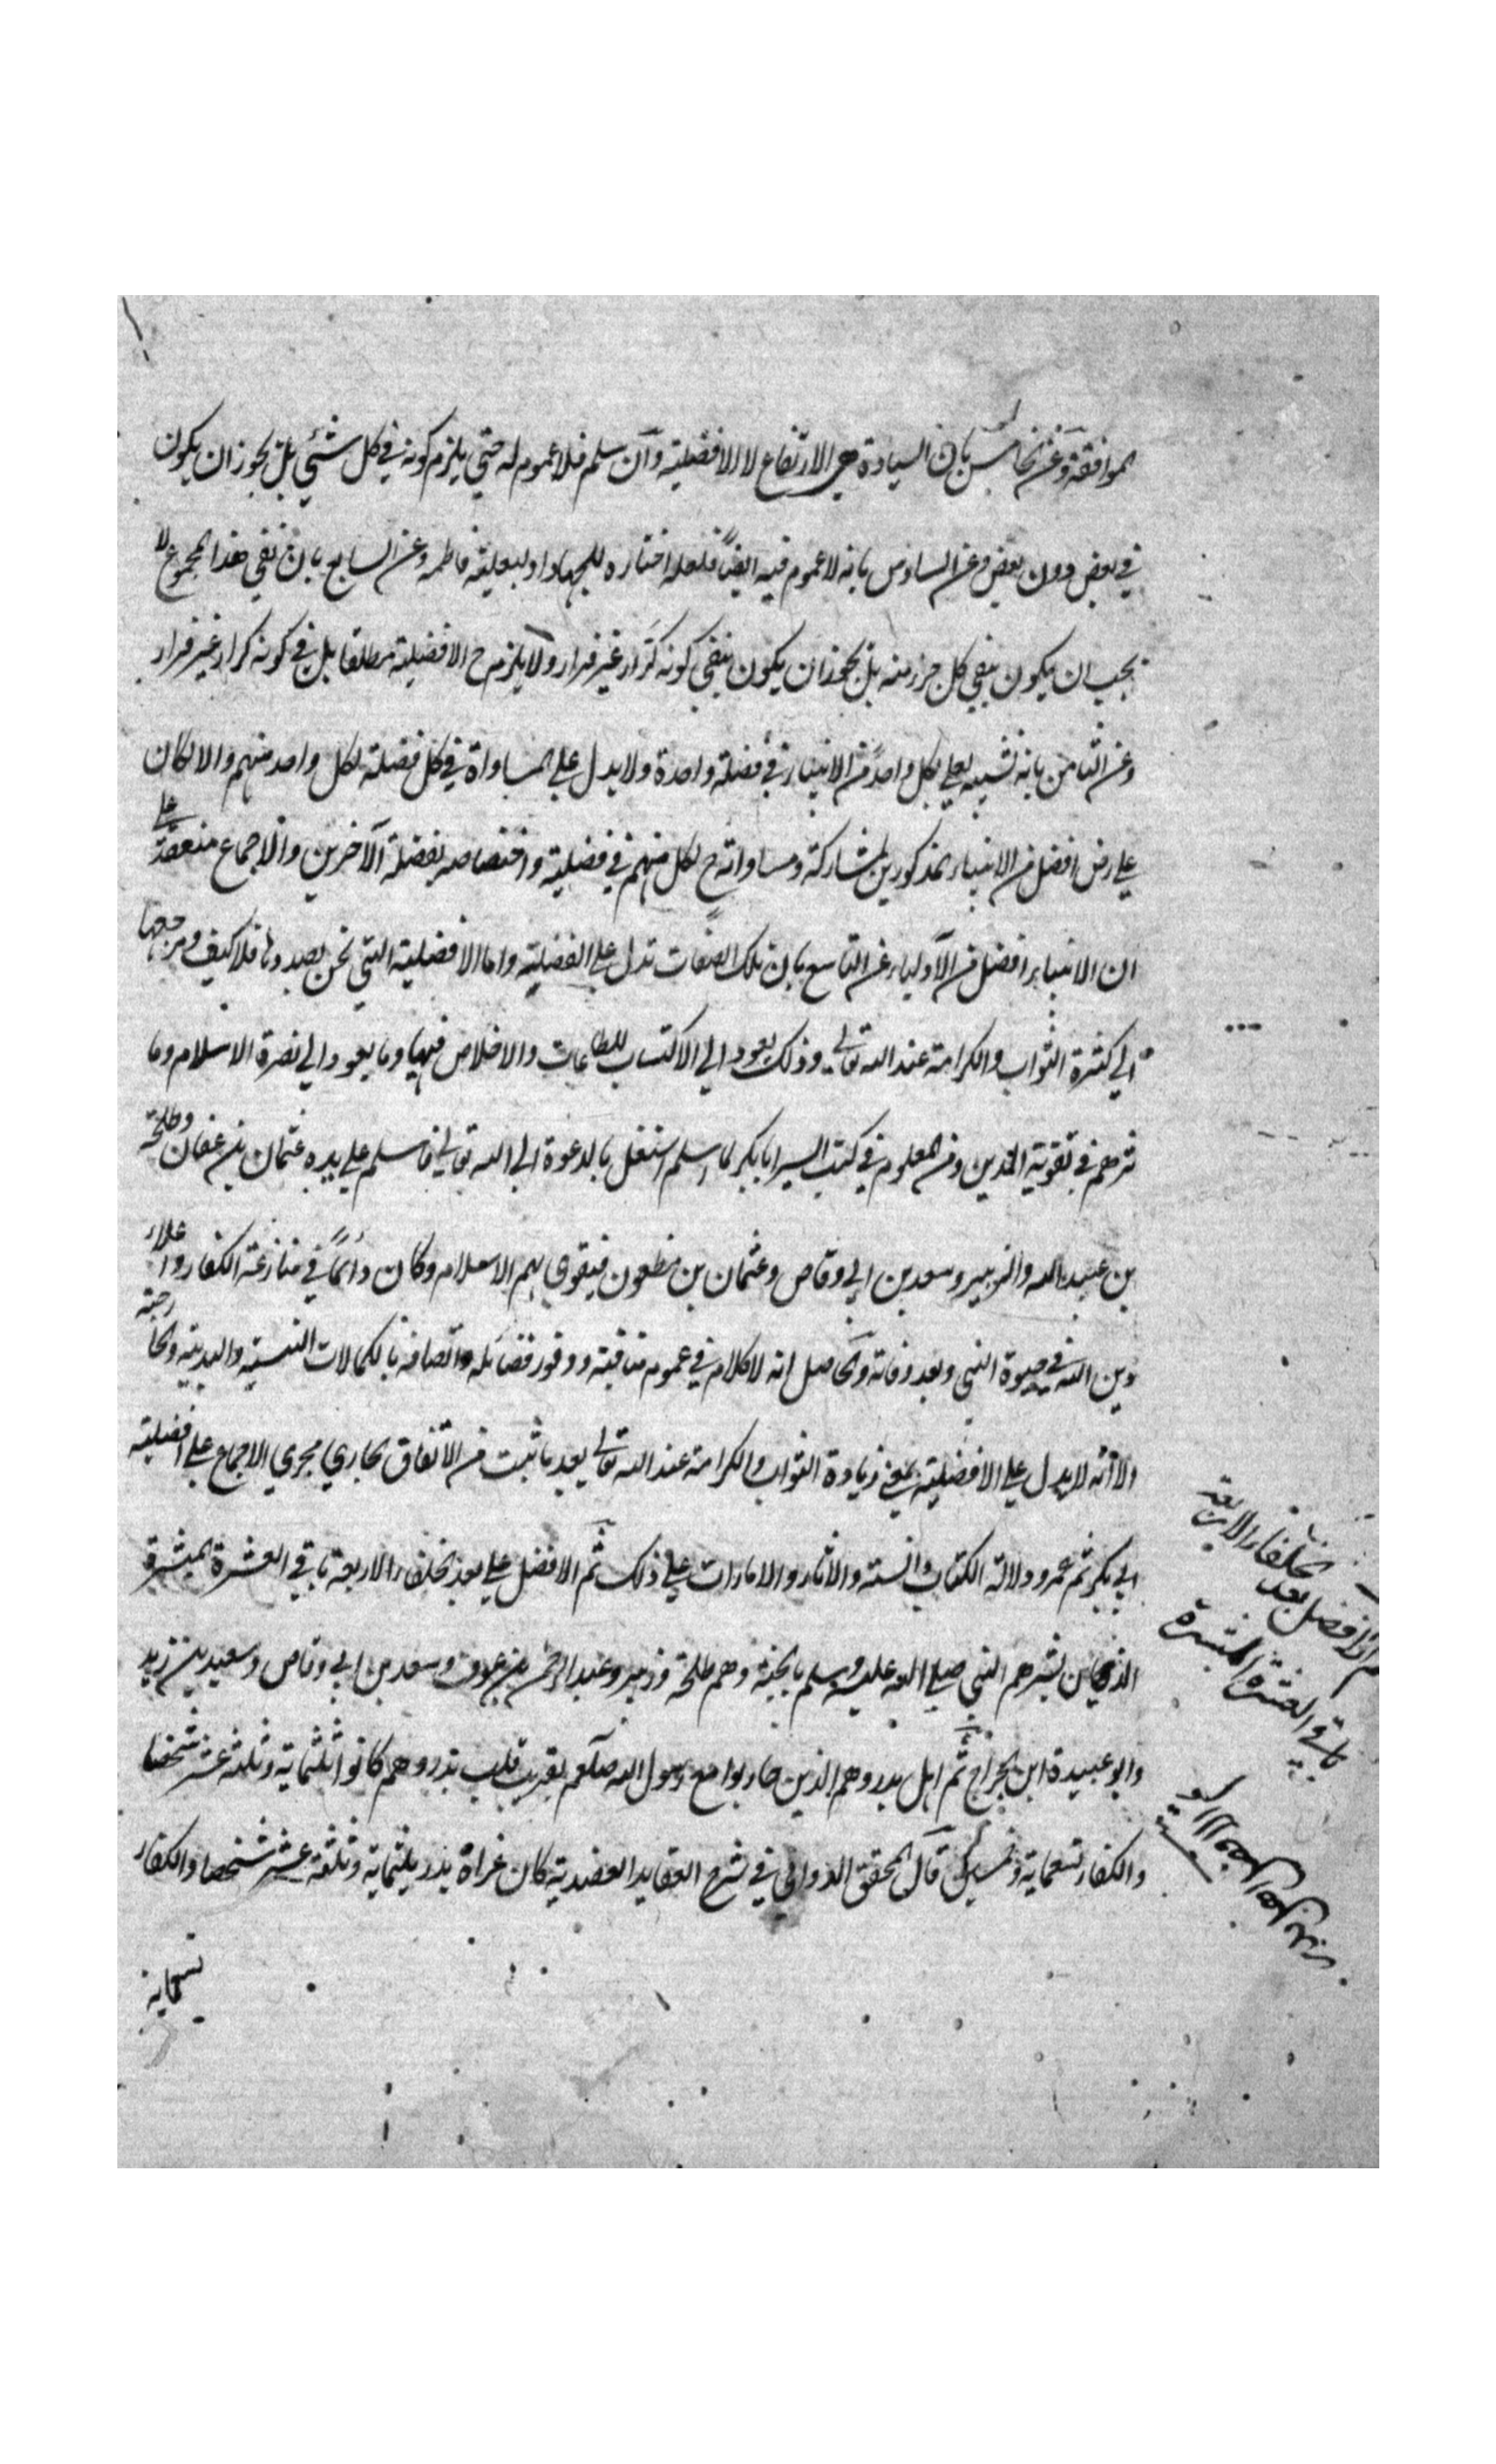 الموافقة وعن الخامس بان السيادة هي الارتفاع لا الافضلية وان سلم فلا عموم له حتى يلزم كونه في كل شئي بل يجوز ان يكون
في بعض دون بعض وعن السادس بانه لا عموم فيه ايضاً فلعله اختاره للجهاد او لبعلية فاطمه وعن السابع بان نفي هذا المجموع لا
يجب ان يكون بنفي كل جزء منه بل يجوز ان يكون بنفي كونه كرّار غير فرار ولا يلزم ح الافضلية مطلقا بل في كونه كرار غير فرار
وعن الثامن بانه تشبيه لعلي بكل واحد من الانبياء في فضيلة واحدة ولا يدل على المساواة في كل فضيلة لكل واحد منهم والا لكان
علي رض افضل من الانبياء المذكورين لمشاركته ومساواته ح لكل منهم في فضيلته واختصاصه بفضيلة الآخرين والاجماع منعقد على
ان الانبياء افضل من الاولياء وعن التاسع بان تلك الصفات تدل على الفضيلة واما الافضلية التي نحن بصددها فلا كيف ومرجعها
الى كثرة الثواب والكرامة عند الله تعالى وذلك يعود الي الاكتساب للطاعات والاخلاص فيها وما يعود الي نصرة الاسلام وما
ثرهم في تقوية الدين ومن المعلوم في كتب السير ابا بكر لما اسلم اشتغل بالدعوة الي الله تعالى فاسلم على يده عثمان بن عفان وطلحة
بن عبيد الله والزبير وسعد بن ابي وقاص وعثمان بن مظعون فيقوى بهم الاسلام وكان دائماً في منازعة الكفار واعلاء
دين الله في حيوة النبي وبعد وفاته والحاصل انه لا كلام في عموم مناقبه ووفور فضائله واتصافه بالكمالات النفسية والبدنية والخارجية
الا انه لا يدل على الافضلية بمعنى زيادة الثواب والكرامة عند الله تعالى بعد ما ثبت من الاتفاق الجاري مجرى الاجماع على افضلية
ابي بكر ثم عمر ودلالة الكتاب والسنة والآثار والامارات على ذلك ثم الافضل علي بعد الخلفاء الاربعة باقي العشرة المبشرة
الذين بشرهم النبي صلى الله عليه وسلم بالجنة وهم طلحة وزبير وعبد الرحمن بن عوف وسعد بن ابي وقاص وسعيد بن زيد
وابو عبيدة ابن الجراح ثم اهل بدر وهم الذين حاربوا مع رسول الله صلعم بقرب قليب بدر وهم كانوا ثلثماية وثلثة عشر شخصا
والكفار تسعماية وخمسين قال المحقق الدواني في شرح العقايد العضدية كان غزاة بدر ثلثماية وثلثة عشر شخصا والكفار
تسعماية
ثم الافضل بعد الخلفاء الاربعة
باقي العشرة المبشرة